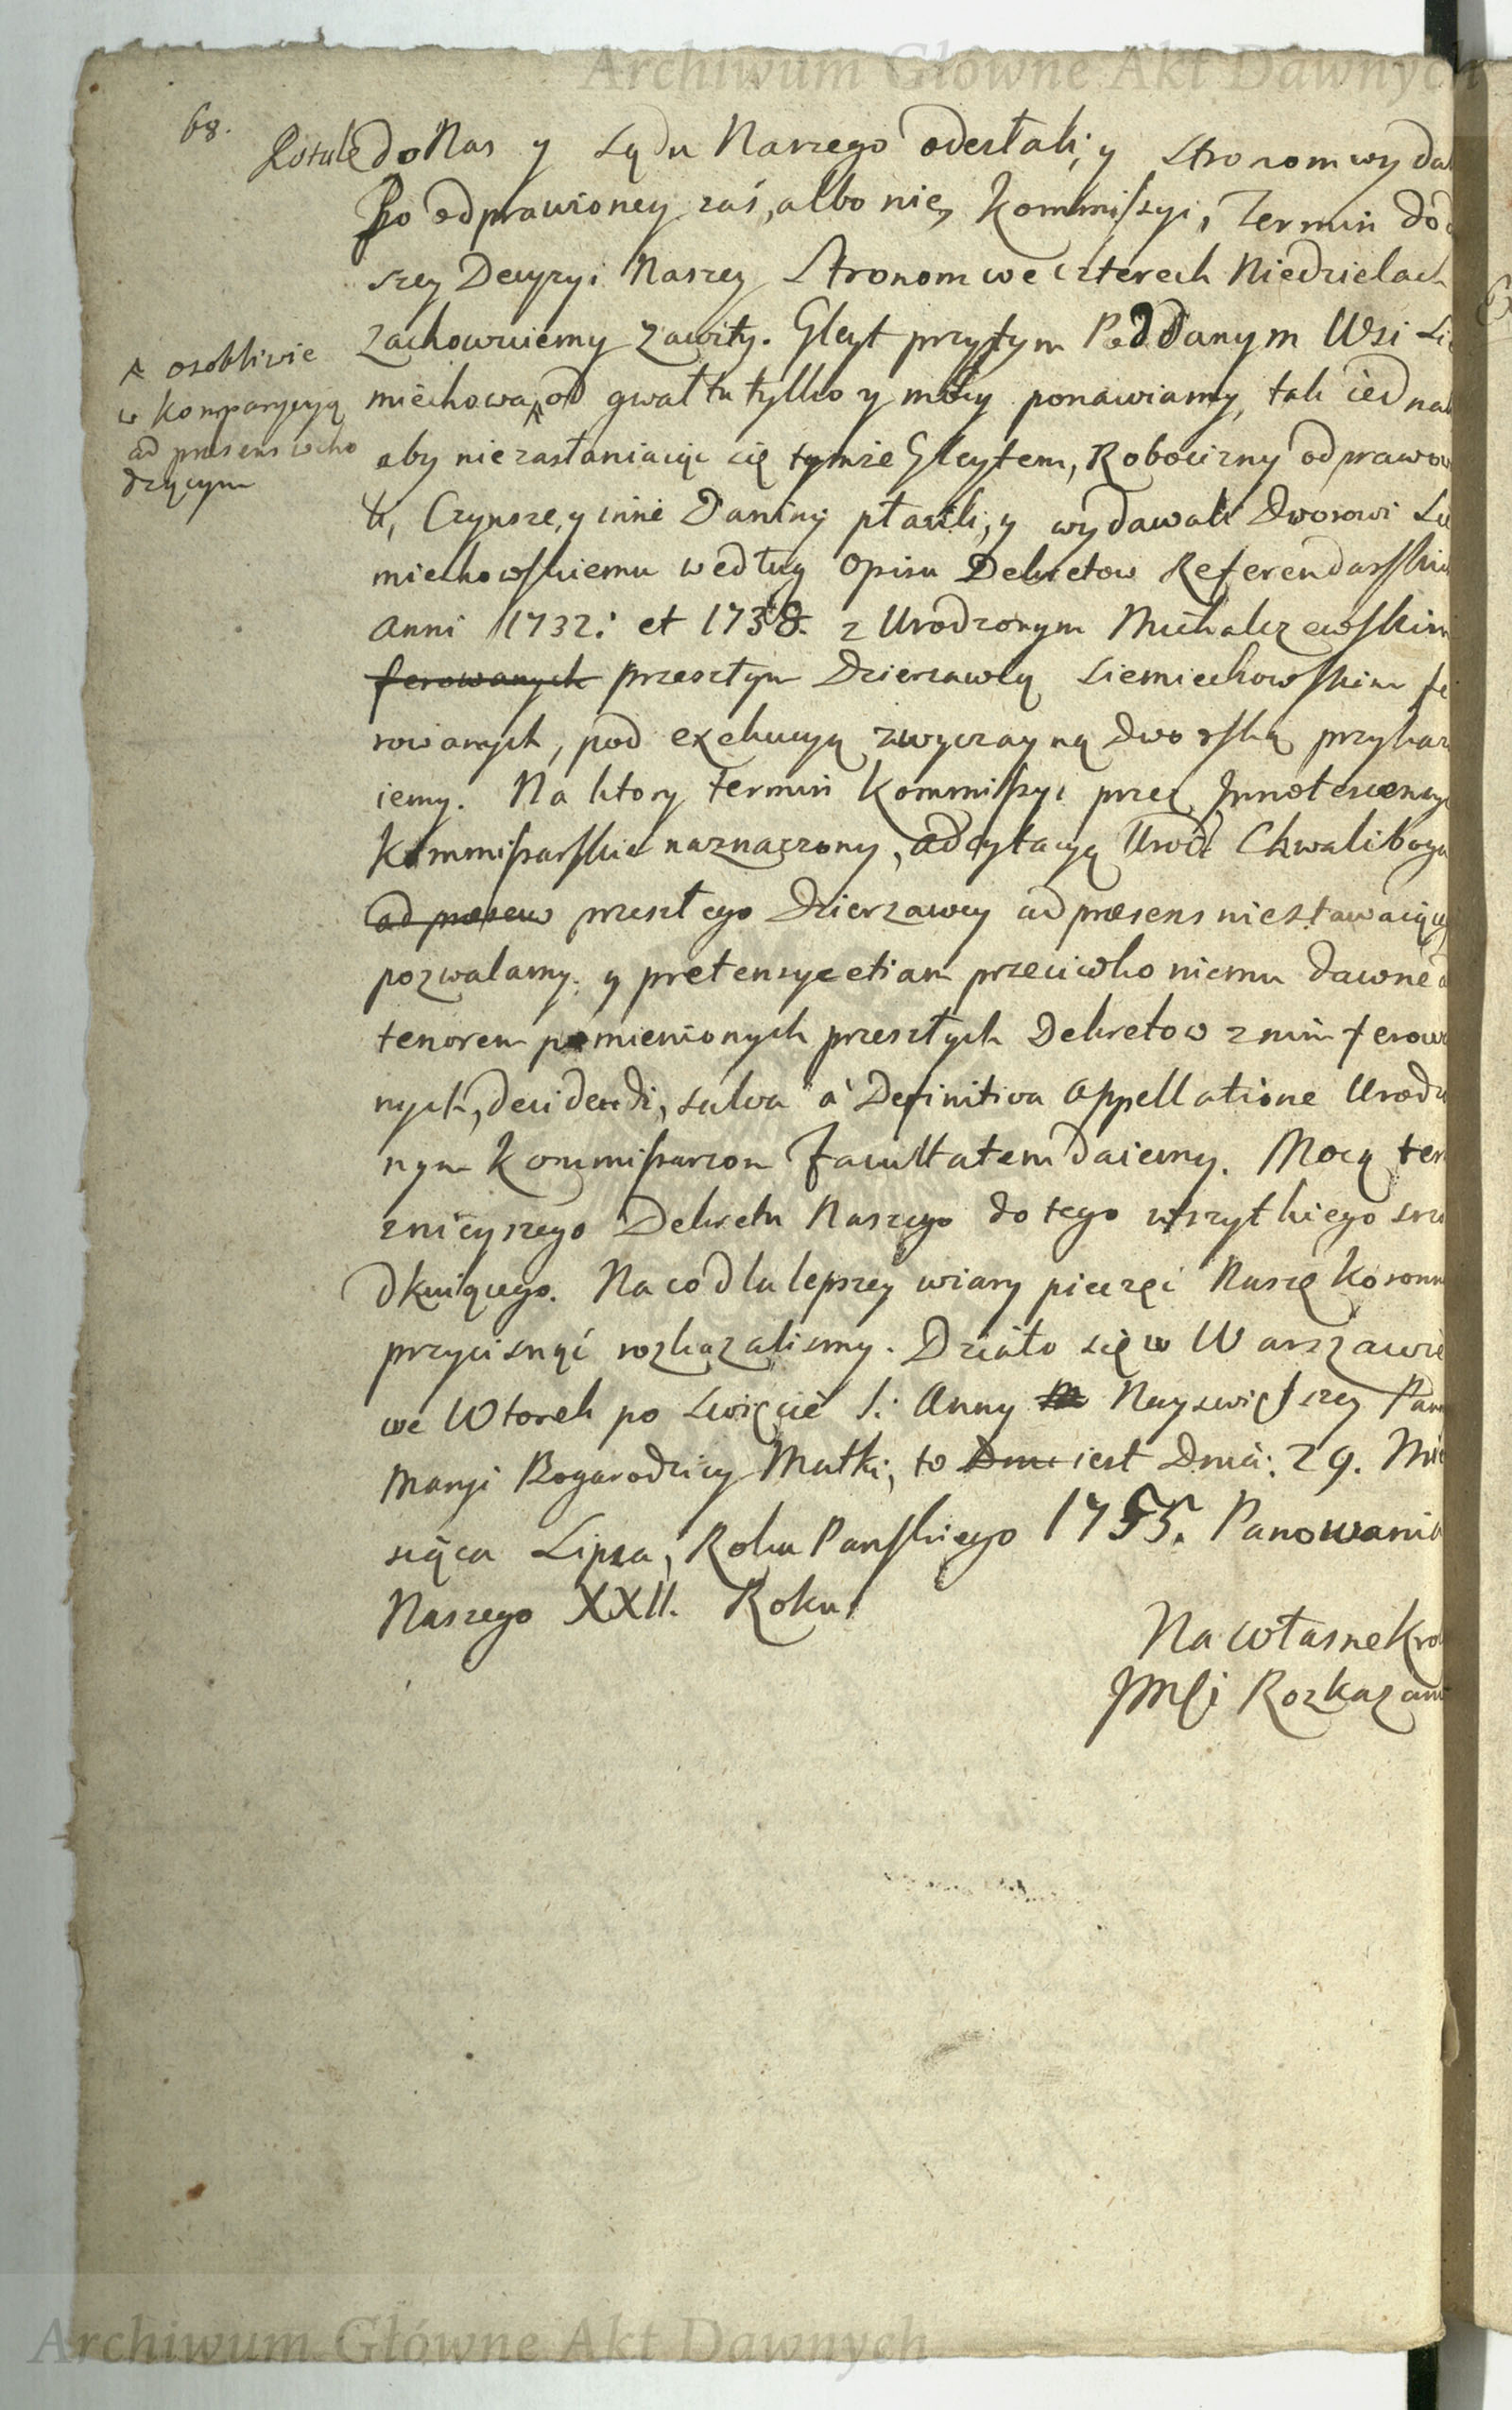 Archiwum Główne Akt Dawnych
68.
Rotulę do Nas y Sądu Naszego odesłali, y Stronom wydal
Po odprawioney zaś, albo nie, Kommissyi, Termin do d
szey Decyzyi Naszey Stronom we czterech Niedzielach
zachowuiemy zawity. Gleyt przytym Poddanym Wsi Sie
miechowa, ^ od gwałtu tylko y mocy ponawiamy, tak iednak
^ osobliwie
w Komparycyą
ad praesens wcho
dzącym
aby nie zasłaniaiąc się tymże Gleytem, Robocizny odprawow
li, Czynsze, y inne Daniny płacili, y wydawali Dworowi Sie
miechowskiemu według Opisu Dekretow Referendarskich
Anni 1732: et 1738. z Urodzonym Michalczewskim
ferowanych przeszłym Dzierzawcą Siemiechowskim fe
rowanych, pod exekucyą zwyczayną dworską przykaz
iemy. Na ktory termin Kommissyi przez Innotescencye
Kommissarskie naznaczony, adcytacyą Urodz Chwaliboga
ad praesen przeszłego Dzierzawcy ad praesens niestawaiącego
pozwalamy. y pretensye etiam przeciwko niemu dawne a
tenorem pomienionych przeszłych Dekretow z nim ferowa
nych, decidendi, salva à Definitiva Appellatione Urodzo
nym Kommissarzom Facultatem daiemy. Mocą tera
znieyszego Dekretu Naszego do tego wszytkiego srzo
dkuiącego. Na co dla lepszey wiary pieczęć Naszę Koronn
przycisnąć rozkazalismy. Działo się w Warszawie
we Wtorek po Swięcie S: Anny Nayswiętszey Pann
Maryi Bogarodzicy Matki, to Dni iest Dnia: 29. Mie
siąca Lipca, Roku Panskiego 1755. Panowania
Naszego XXII. Roku.
Na własne Krol
JMCi Rozkazani
Archiwum Główne Akt Dawnych